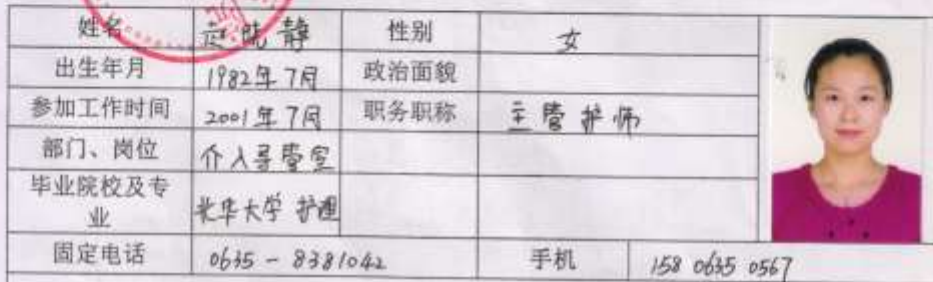 姓名 赵晓静 性别 女
出生年月 1982年7月 政治面貌
参加工作时间 2001年7月 职务职称 主管护师
部门、岗位 介入导管室
毕业院校及专业 北华大学 护理
固定电话 0635-8381042 手机 158 0635 0567